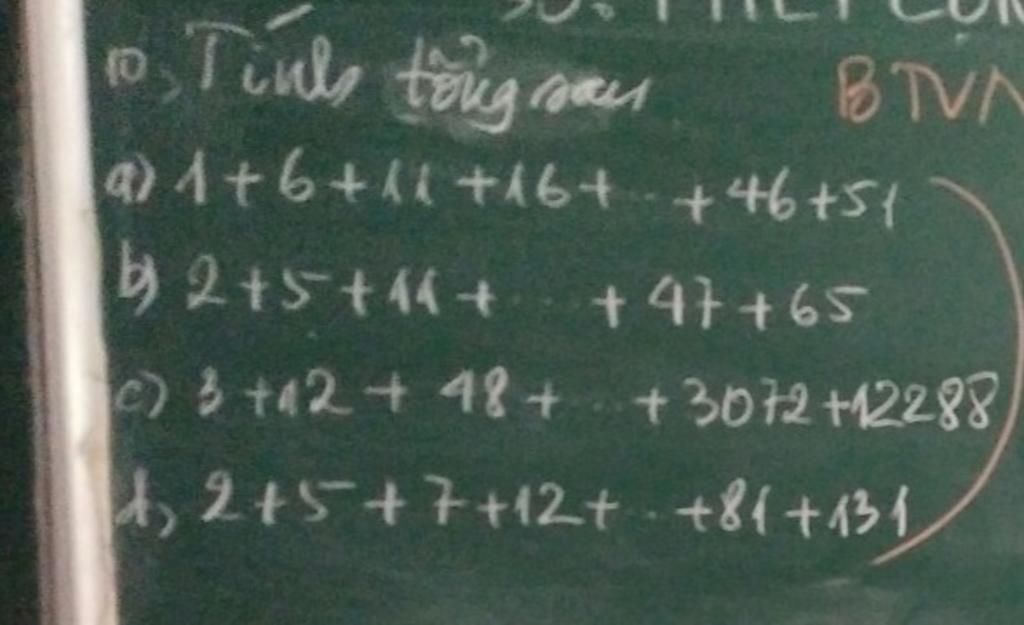 10, Tính tổng sau
BTVN
a) 1 + 6 + 11 + 16 + ... + 46 + 51
b) 2 + 5 + 11 + ... + 47 + 65
c) 3 + 12 + 48 + ... + 3072 + 12288
d, 2 + 5 + 7 + 12 + ... + 81 + 131